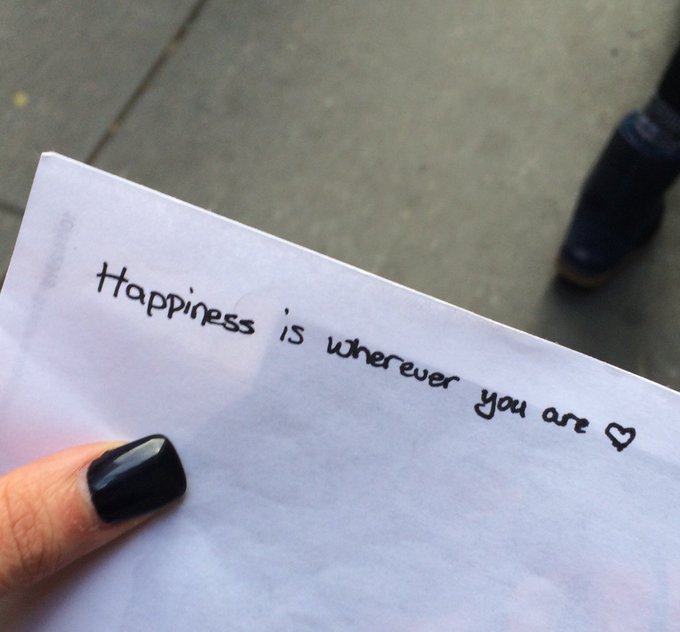 Happiness is wherever you are ♡